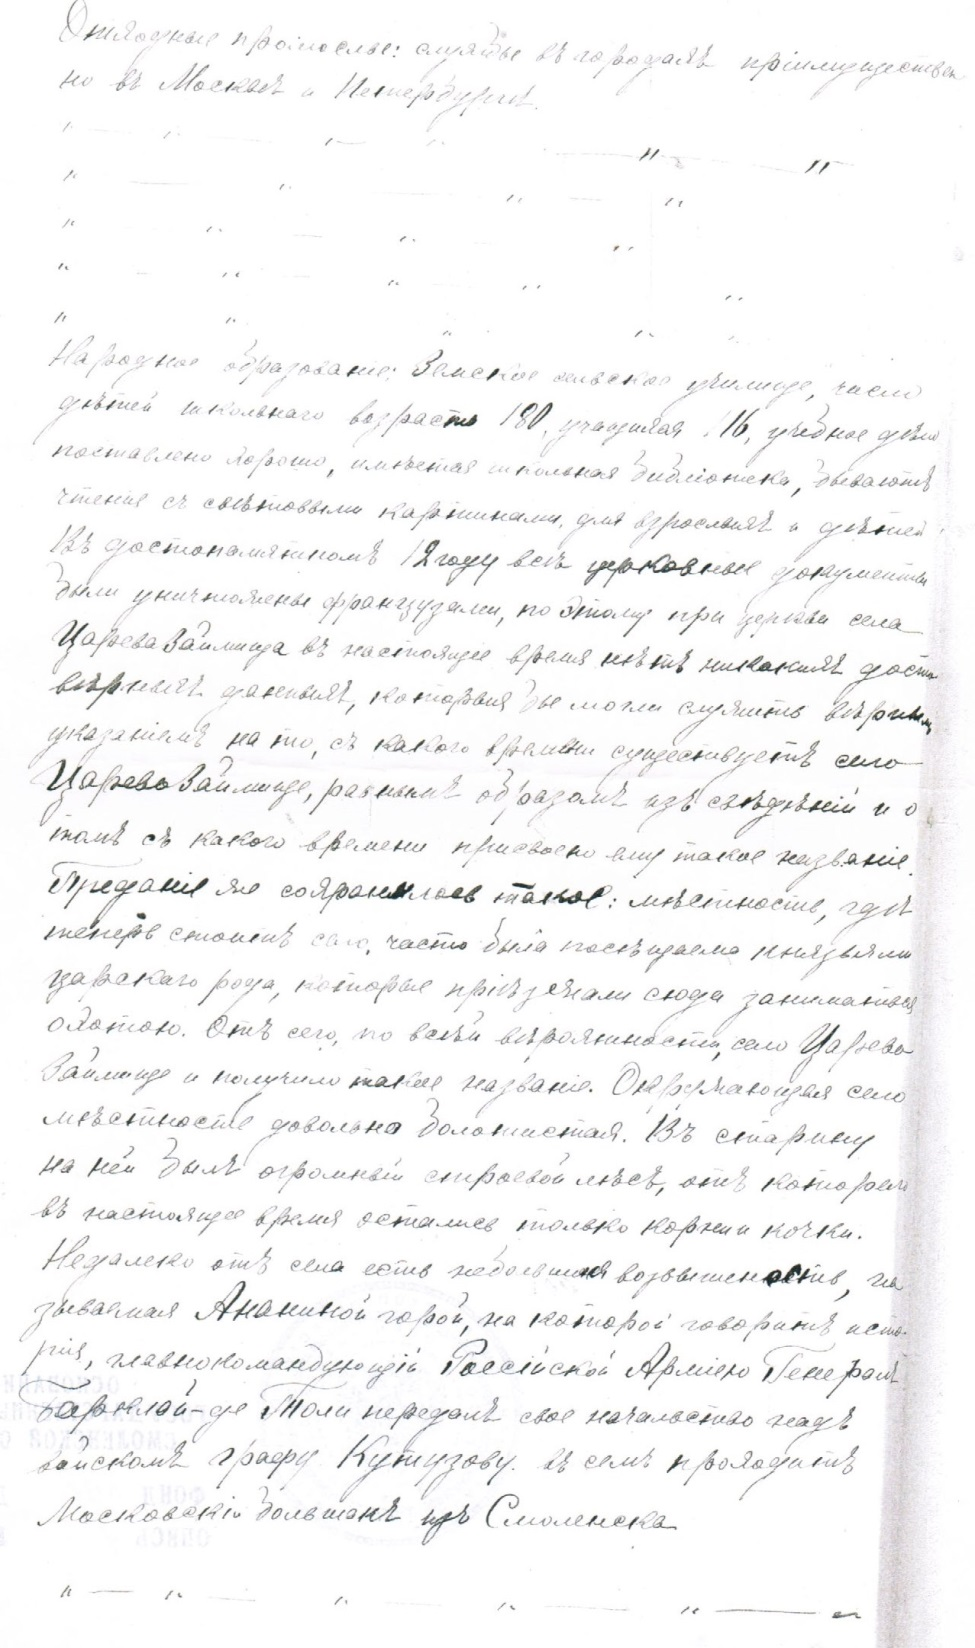 Отхожіе промыслы: служатъ въ городахъ преимуществен
но въ Москвѣ и Петербургѣ.
" — " — " — " — " — "
" — " — " — "
" " — " "
" " " " "
" " " "
Народное образованіе: Земское сельское училище, число
дѣтей школьнаго возраста 180, учащихся 116, учебное дѣло
поставлено хорошо, имѣется школьная библіотека, бываютъ
чтенія съ свѣтовыми картинами, для взрослыхъ и дѣтей
Въ достопамятномъ 12 году всѣ церковные документы
были уничтожены французами, по этому при церкви села
Царева Займища въ настоящее время нѣтъ никакихъ досто
вѣрныхъ данныхъ, которыя бы могли служить вѣрнымъ
указаніемъ на то, съ какого времени существуетъ село
Царево Займище, равнымъ образомъ нѣтъ свѣдѣній и о
томъ съ какого времени присвоено ему такое названіе.
Преданіе же сохранилось такое: мѣстность, гдѣ
теперь стоитъ село, часто была посѣщаема князьями
царскаго рода, которые пріѣзжали сюда заниматься
охотою. Отъ сего, по всей вѣроятности, село Царево
Займище и получило такое названіе. Окружающая село
мѣстность довольно болотистая. Въ старину
на ней былъ огромный строевой лѣсъ, отъ котораго
въ настоящее время остались только корни и кочки.
Недалеко отъ села есть небольшая возвышенность, на
зываемая Ананиной горой, на которой говоритъ исто-
рія, главнокомандующій Россійской Арміею Генералъ
Барклай-де Толи передалъ свое начальство надъ
войскомъ графу Кутузову. въ семъ проходитъ
Московскій большакъ изъ Смоленска
" — " — " — " — " — "